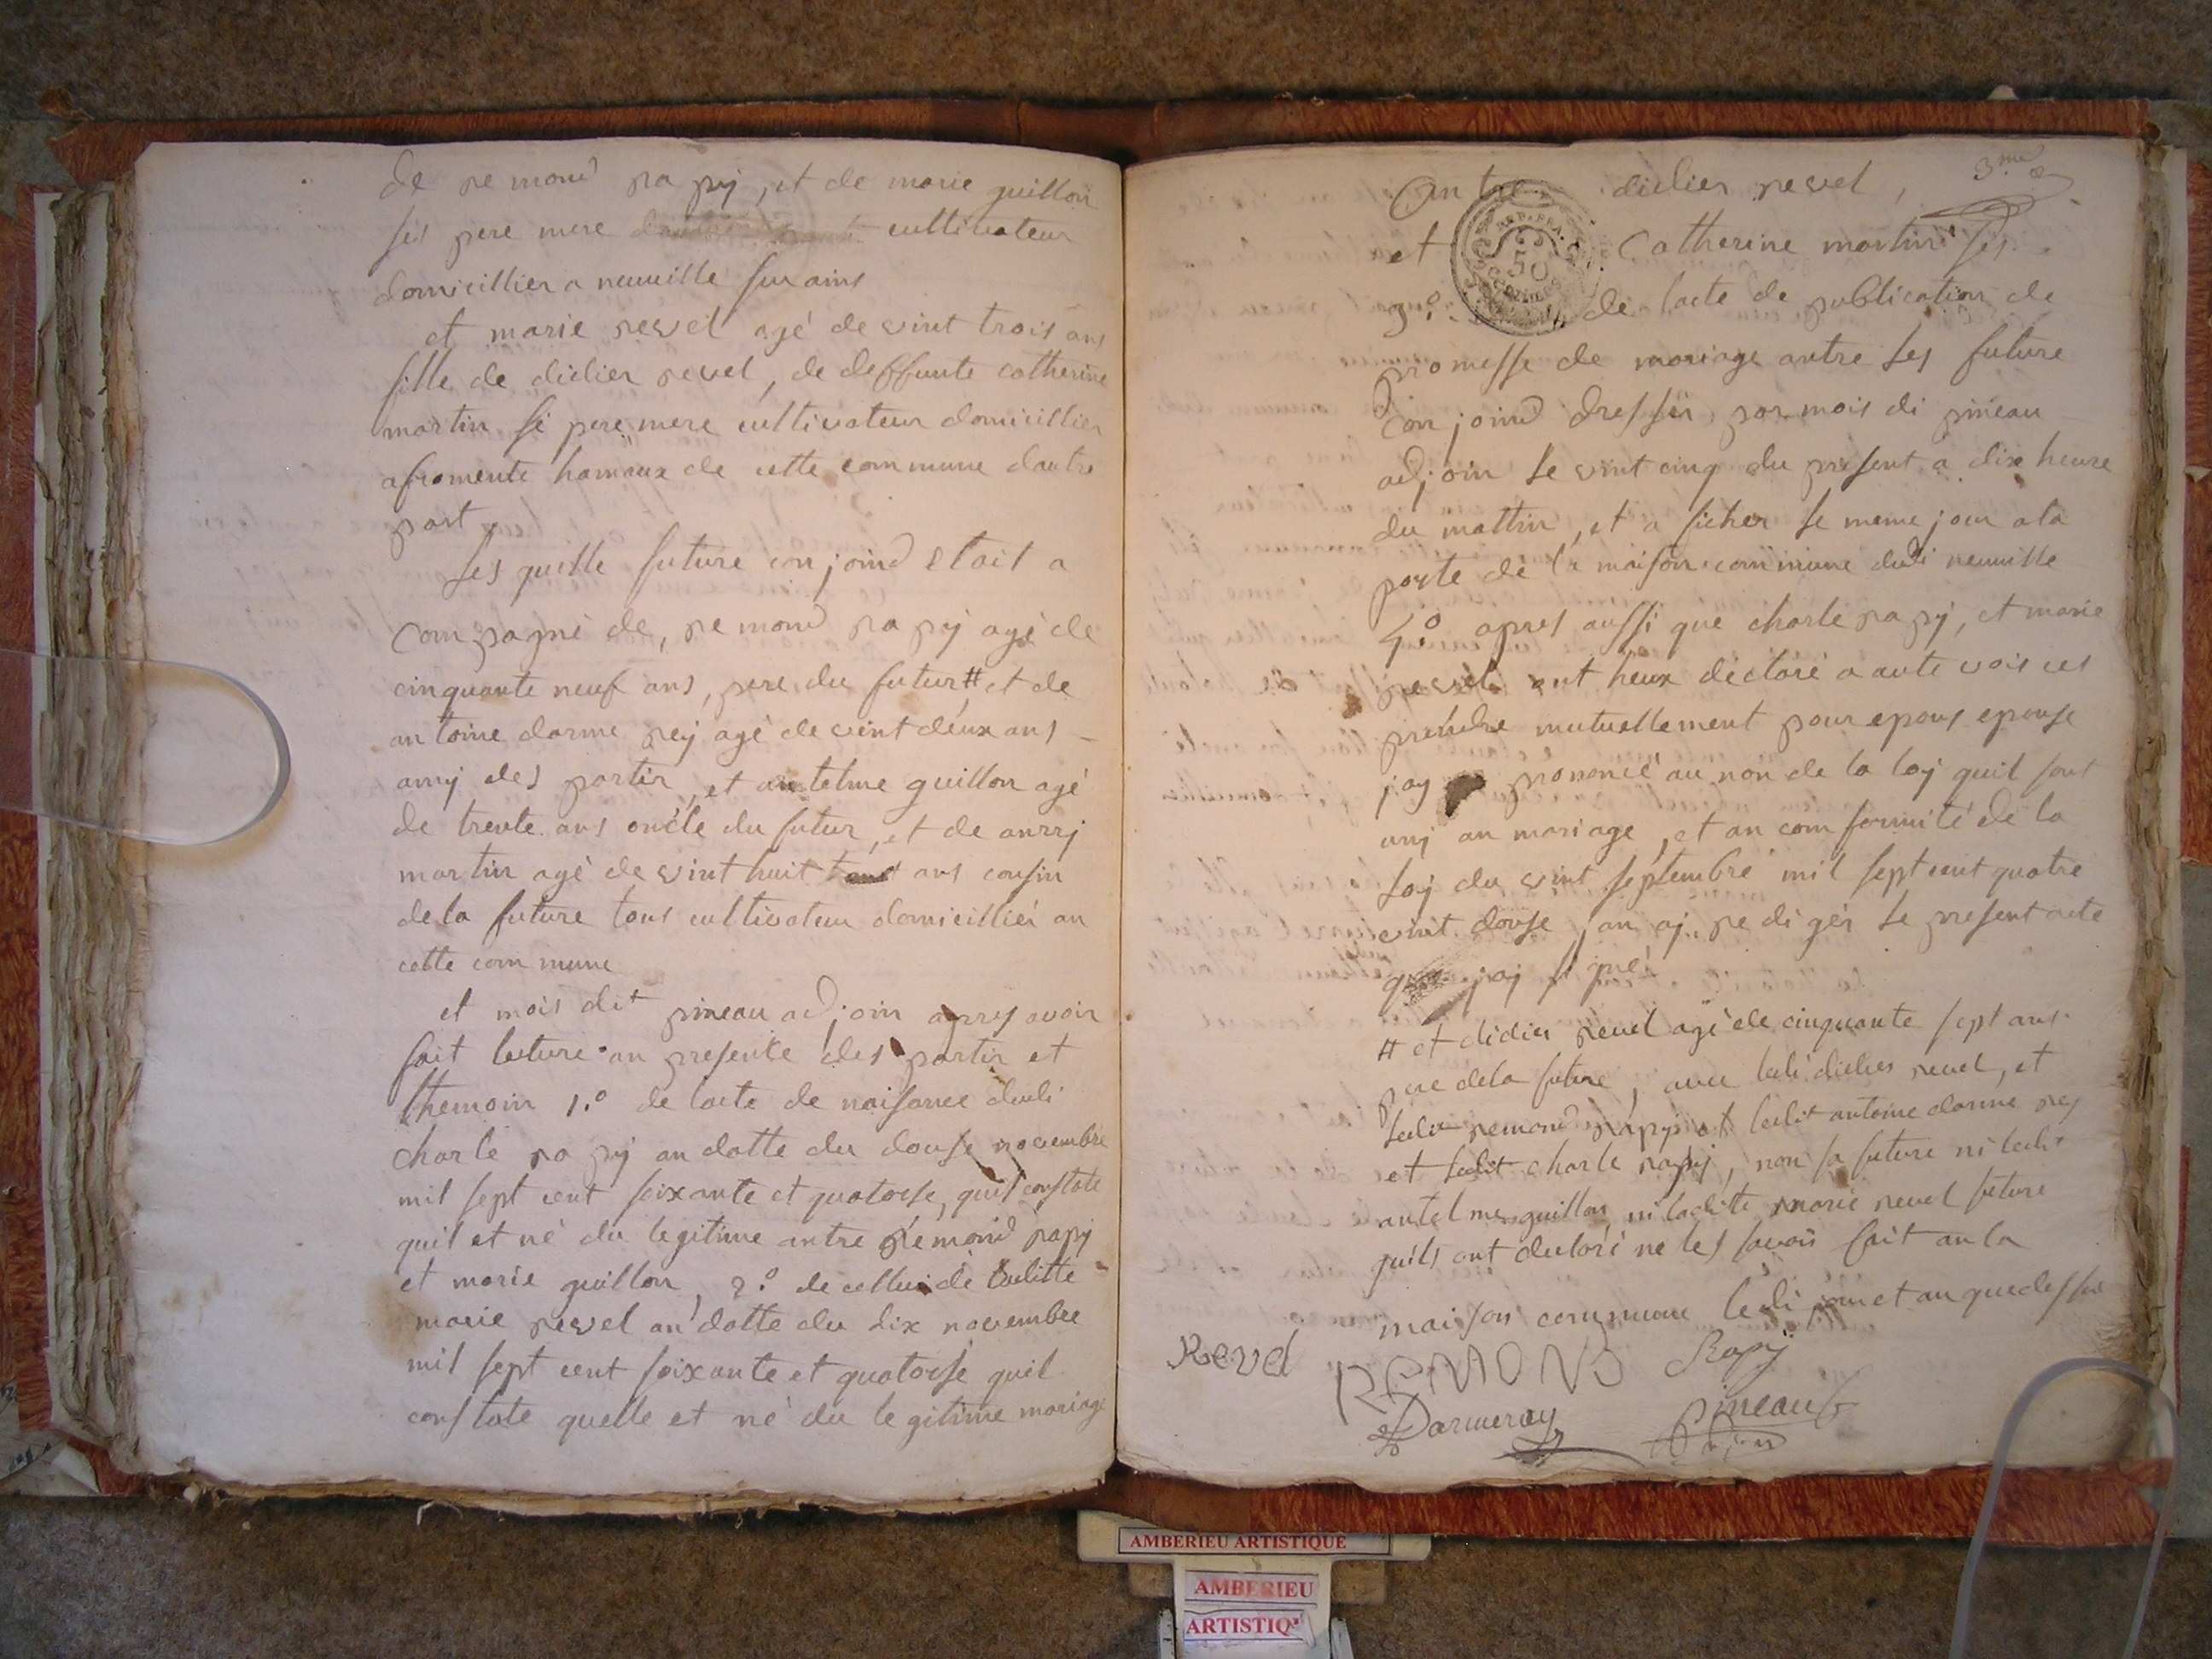 de remond rapy, et de marie guillon
ses pere mere cultivateur
domicillier a neuville sur ains
et marie revel agé de vint trois ans
fille de didier revel, de deffunte catherine
martin se pere mere cultivateur domicillier
a fromente hamaux de cette commune dautre
part
les quelle future conjoind etait a
compagné de, remond rapy agé de
cinquante neuf ans, pere du futur # et de
antoine darme rey agé de vint deux ans
amy des partir, et antelme guillon agé
de trente ans oncle du futur, et de anrry
martin agé de vint huit ans cousin
de la future tous cultivateur domicillier an
cette commune
et mois dit pineau adjoin apres avoir
fait lecture an presente des partir et
themoin 1.° de lacte de naisance dudi
charle rapy an datte du douse novembre
mil sept cent soixante et quatorse, quil constate
quil et né du legitime antre remond rapy
et marie guillon, 2.° de cellui de laditte
marie revel an datte du dix novembre
mil sept cent soixante et quatorse quil
constate quelle et né du legitime mariage
3.me
Antre didier revel,
et catherine martin ses
3.° de lacte de publication de
promesse de mariage antre les future
conjoind dresser par mois di pineau
adjoin le vint cinq du present a dix heure
du mattin, et a ficher le meme jour a la
porte de la maison commune dudi neuville
4.° apres aussi que charle rapy, et marie
revel ont heux declaré a aute vois ces
prendre mutuellement pour epous epouse
jay prononcé au non de la loy quil sont
uny an mariage, et an comformité de la
loy du vint septembre mil sept cent quatre
vint douse, jan ay redigér le present acte
que jay
# et didier revel agé de cinquante sept ans
pere dela future, avec ledi didier revel, et
ledit remond rapy et ledit antoine darme rey
et ledit charle rapy, non sa future ni ledit
antelme guillon ni laditte marie revel future
quils ont declaré ne les savoir fait an la
maison commune ledi jour et an que dessus
Revel REMOND Rapy
Darmeray Pineau
adjoin
REP. FRA.
50
CENTIMES
AMBERIEU ARTISTIQUE
AMBERIEU
ARTISTIQ